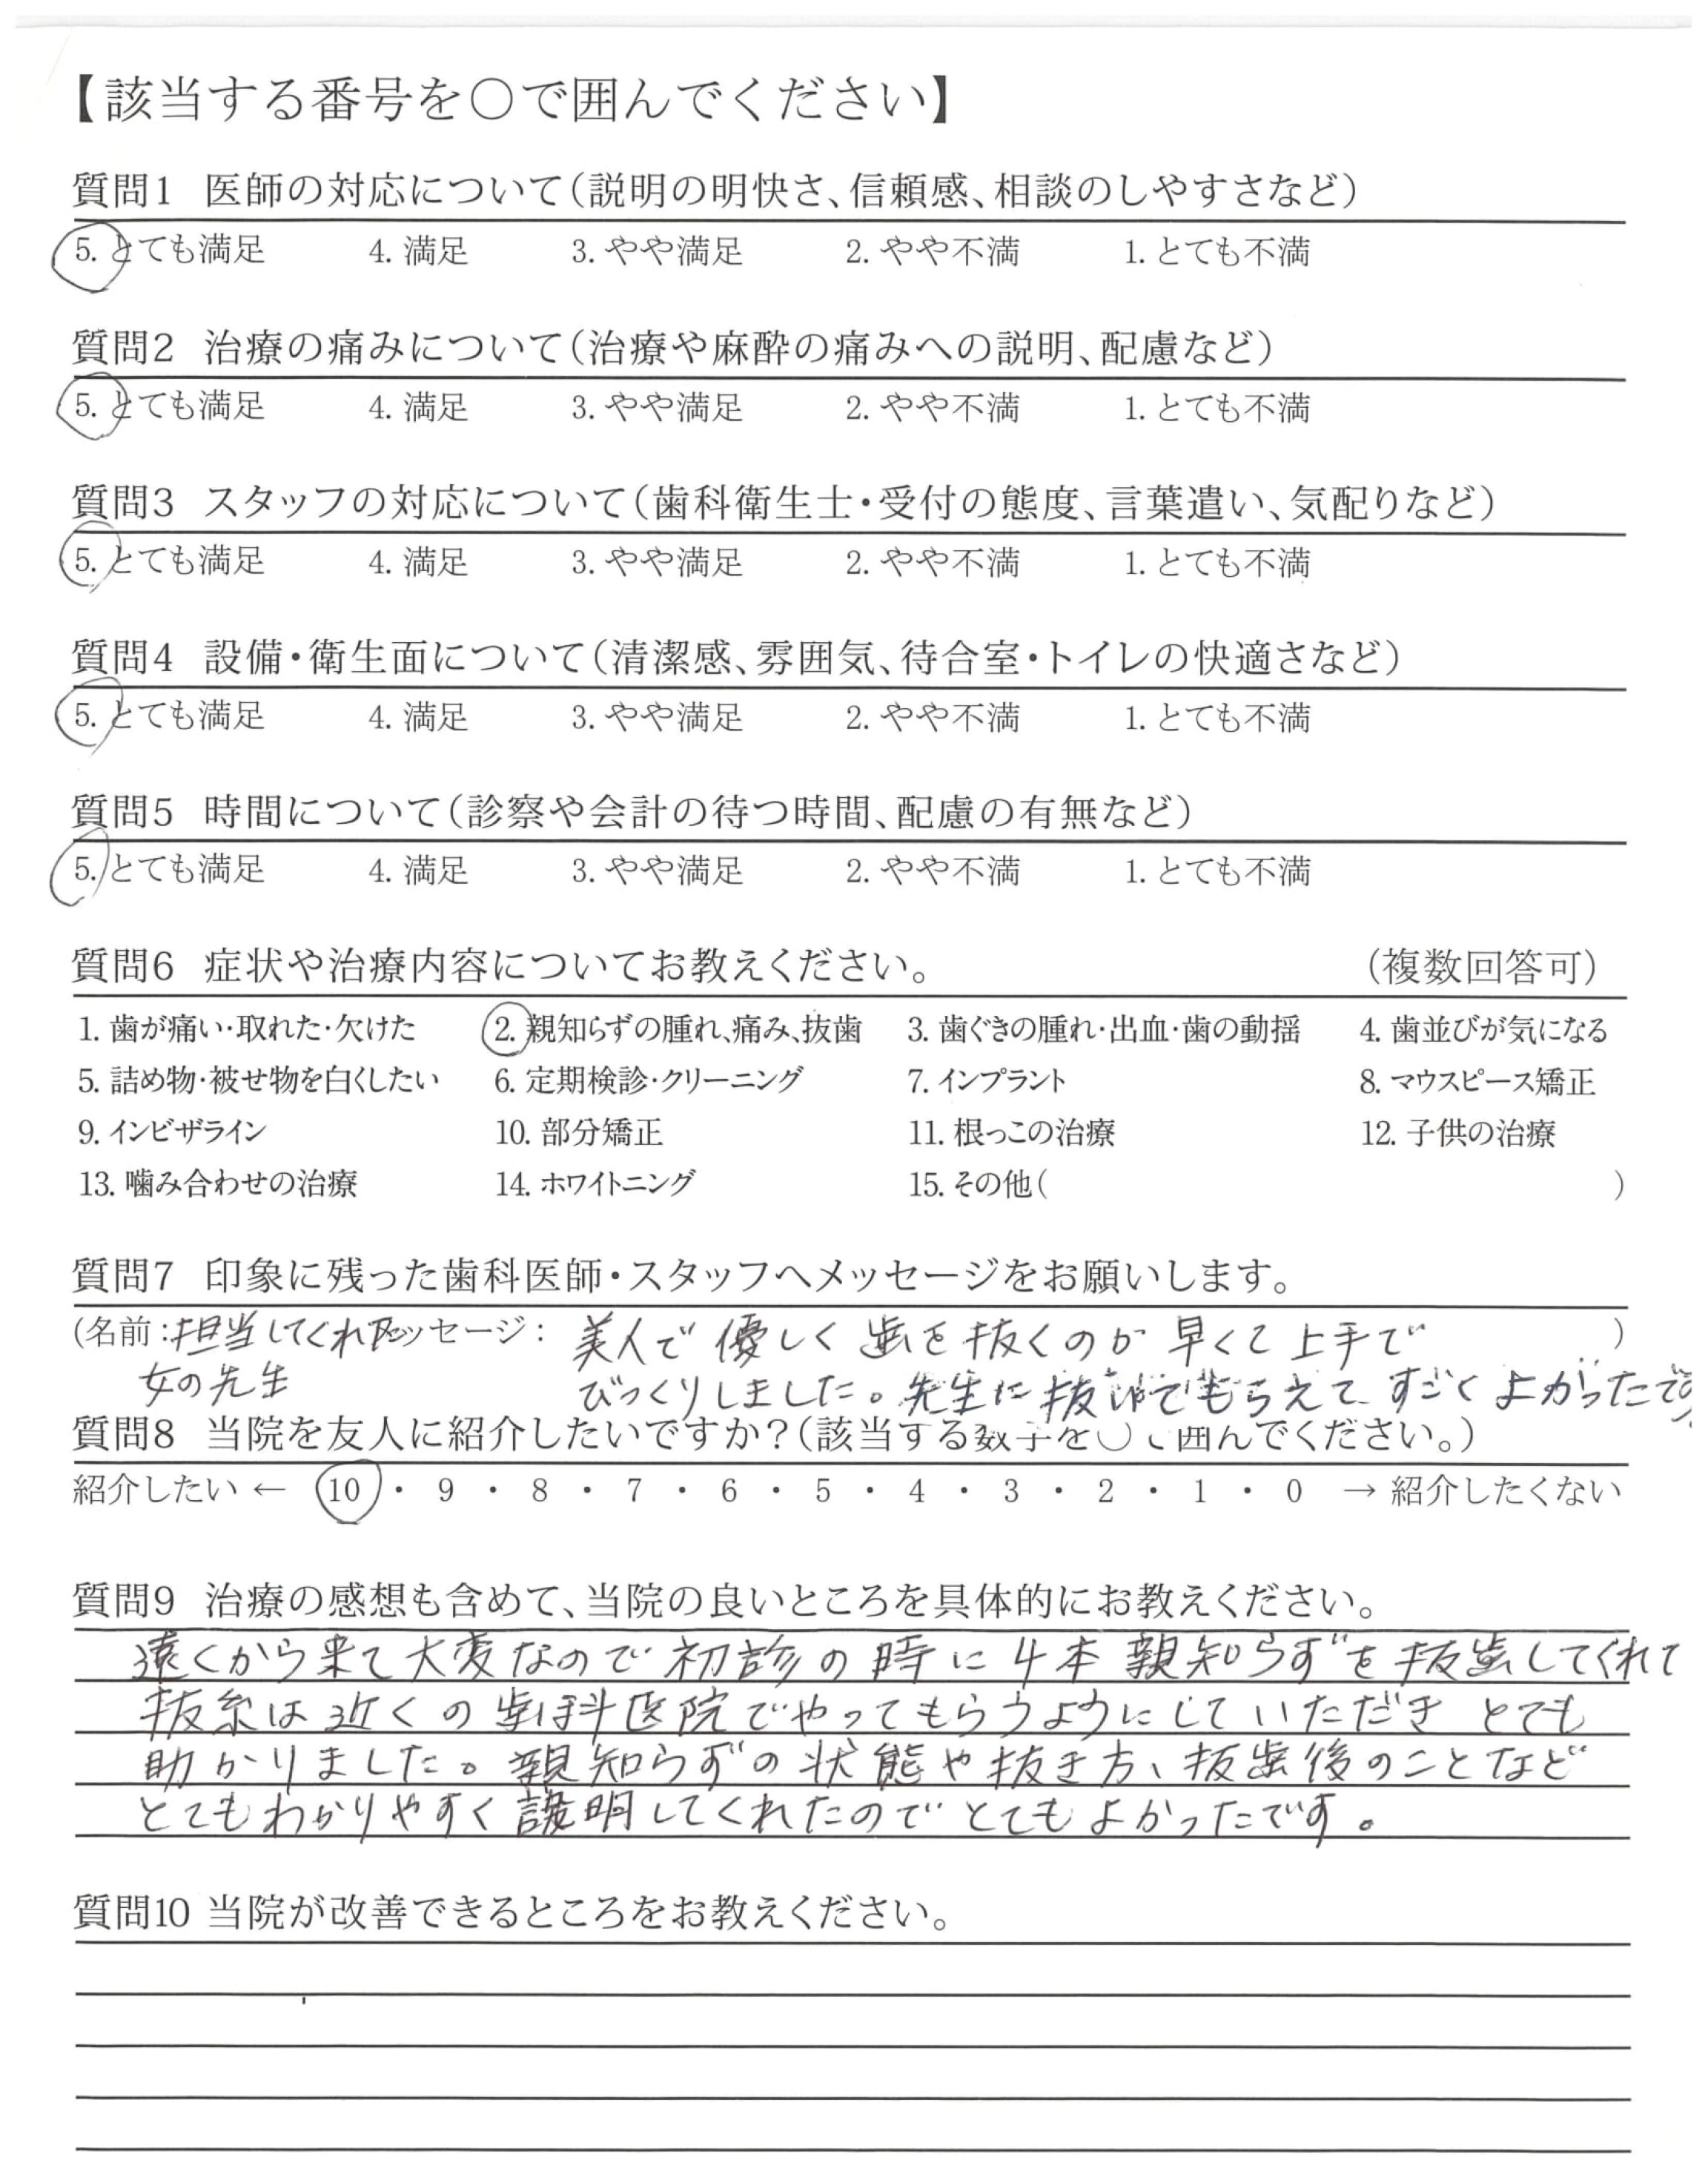 【該当する番号を○で囲んでください】
質問1 医師の対応について(説明の明快さ、信頼感、相談のしやすさなど)
5. とても満足 4. 満足 3. やや満足 2. やや不満 1. とても不満
質問2 治療の痛みについて(治療や麻酔の痛みへの説明、配慮など)
5. とても満足 4. 満足 3. やや満足 2. やや不満 1. とても不満
質問3 スタッフの対応について(歯科衛生士・受付の態度、言葉遣い、気配りなど)
5. とても満足 4. 満足 3. やや満足 2. やや不満 1. とても不満
質問4 設備・衛生面について(清潔感、雰囲気、待合室・トイレの快適さなど)
5. とても満足 4. 満足 3. やや満足 2. やや不満 1. とても不満
質問5 時間について(診察や会計の待つ時間、配慮の有無など)
5. とても満足 4. 満足 3. やや満足 2. やや不満 1. とても不満
質問6 症状や治療内容についてお教えください。 (複数回答可)
1. 歯が痛い・取れた・欠けた 2. 親知らずの腫れ、痛み、抜歯 3. 歯ぐきの腫れ・出血・歯の動揺 4. 歯並びが気になる
5. 詰め物・被せ物を白くしたい 6. 定期検診・クリーニング 7. インプラント 8. マウスピース矯正
9. インビザライン 10. 部分矯正 11. 根っこの治療 12. 子供の治療
13. 噛み合わせの治療 14. ホワイトニング 15. その他( )
質問7 印象に残った歯科医師・スタッフへメッセージをお願いします。
(名前:担当してくれた メッセージ: 美人で 優しく 歯を抜くのが 早くて上手で )
女の先生 びっくりしました。先生に抜いてもらえて すごく よかったです
質問8 当院を友人に紹介したいですか?(該当する数字を○で囲んでください。)
紹介したい ← 10 ・ 9 ・ 8 ・ 7 ・ 6 ・ 5 ・ 4 ・ 3 ・ 2 ・ 1 ・ 0 → 紹介したくない
質問9 治療の感想も含めて、当院の良いところを具体的にお教えください。
遠くから来て大変なので 初診の時に 4本 親知らずを 抜歯してくれて
抜糸は近くの歯科医院でやってもらうようにしていただき とても
助かりました。親知らずの状態や抜き方、抜歯後のことなど
とてもわかりやすく説明してくれたので とてもよかったです。
質問10 当院が改善できるところをお教えください。